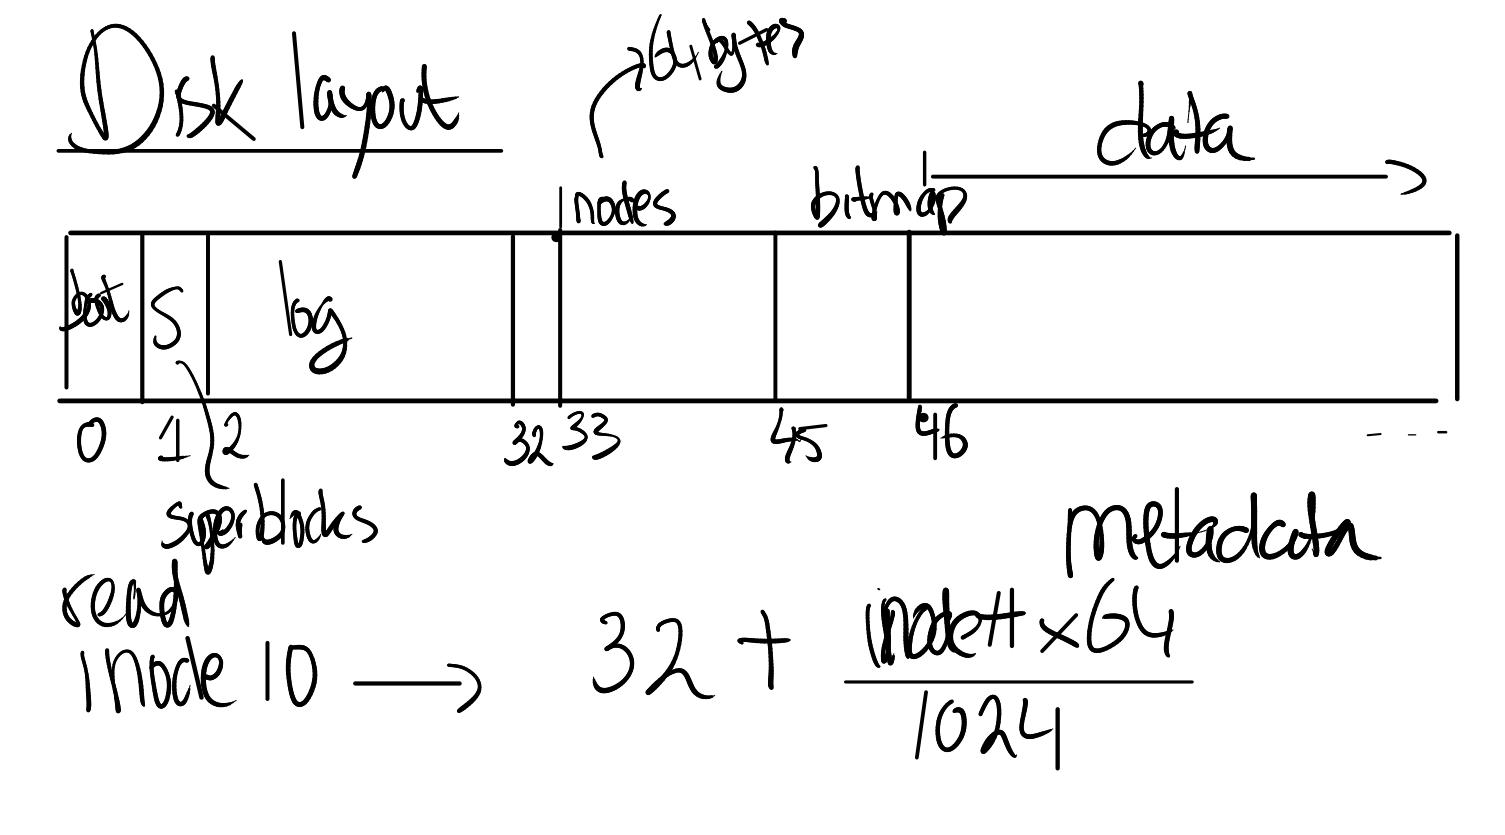 Disk layout
64 bytes
data
inodes
bitmap
boot
S
log
0
1
2
32
33
45
46
- - -
superblocks
metadata
read
inode 10
32 + inode# x 64
1024